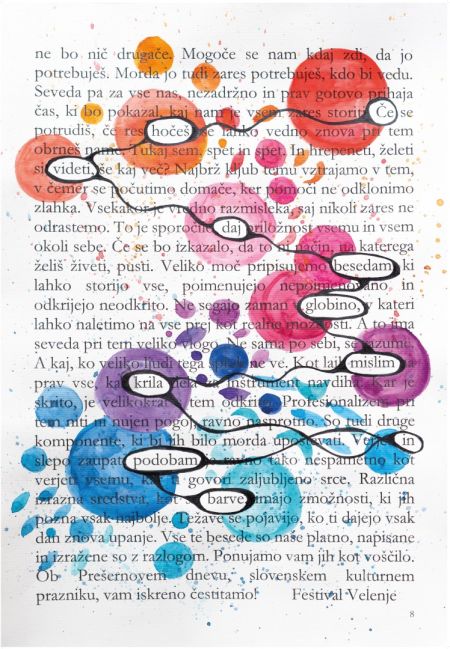 ne bo nič drugače. Mogoče se nam kdaj zdi, da jo
potrebuješ. Morda jo tudi zares potrebuješ, kdo bi vedu.
Seveda pa za vse nas, nezadržno in prav gotovo prihaja
čas, ki bo pokazal, kaj nam v vsem zares stori. Če se
potrudiš, če res hočeš, lahko vedno znova pri tem
obrneš name. Tukaj sem, spet in pet. In hrepeneti, želeti
si videti še kaj več? Najbrž kljub temu vztrajamo v tem,
v čemer se počutimo domače, kar pomoči ne odklonimo
zlahka. Vsekakor je vredno razmisleka, saj nikoli zares ne
odrastemo. To je sporočilo daj priložnost vsemu in vsem
okoli sebe. Če se bo izkazalo, da to ni način, na katerega
želiš živeti, pusti. Veliko moč pripisujemo besedam, ki
lahko storijo vse, poimenujejo nepoimenovano in
odkrijejo neodkrito. Ne segajo zaman globino, v kateri
lahko naletimo na vse prej kot realne možnosti. A to ima
seveda pri tem veliko vlogo. Ne sama po sebi, se razume.
A kaj, ko veliko ljudi tega sploh ne ve. Kot lahko mislim
prav vse, ka krila dela za inštrument navdiha. Kar je
skrito, je velikokrat s tem odkrito. Profesionalizem pri
tem niti ni nujen pogoj, ravno nasprotno. So tudi druge
komponente, ki bi jih bilo morda upoštevati. Verjeti in
slepo zaupati podobam je ravno tako nespametno kot
verjeti vsemu, kar govori zaljubljeno srce. Različna
izrazna sredstva, kot so barve, imajo zmožnosti, ki jih
pozna vsak najbolje. Težave se pojavijo, ko ti dajejo vsak
dan znova upanje. Vse te besede so naše platno, napisane
in izražene so z razlogom. Ponujamo vam jih kot voščilo.
Ob Prešernovem dnevu, slovenskem kulturnem
prazniku, vam iskreno čestitamo! Festival Velenje
8